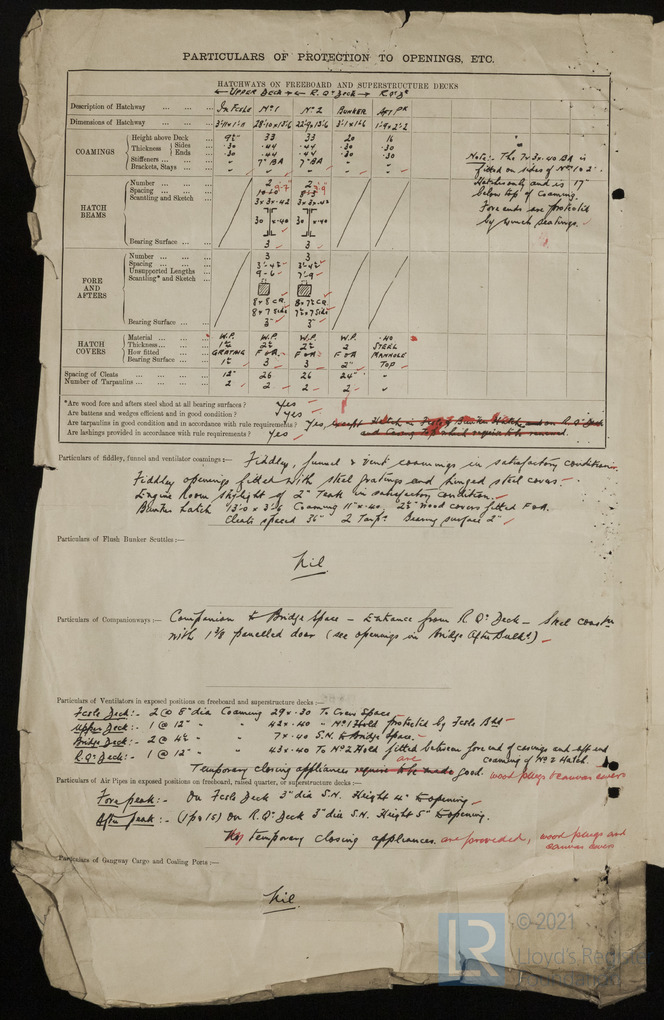 PARTICULARS OF PROTECTION TO OPENINGS, ETC.
HATCHWAYS ON FREEBOARD AND SUPERSTRUCTURE DECKS
← UPPER DECK → ← R. Qr DECK →
Description of Hatchway ... ... In Fcsle Nº 1 Nº 2 BUNKER AFT PK
Dimensions of Hatchway ... ... 28'-10 x 13'-6
COAMINGS
Height above Deck ... 9" 33 33 20 16
Thickness Sides ... .30 .44 .44 .30 .30
Ends ... .30 .44 .44 .30 .30
Stiffeners ... ... 7" BA 7" BA
Brackets, Stays ... ...
Note:- The 7x3x.40 BA is
fitted on sides of Nº 1 & 2
Hatches only and is 17"
below top of Coaming.
Fore ends are protected
by winch seatings.
HATCH BEAMS
Number ... ... ... 2 2
Spacing ... ... ...
Scantling and Sketch ... 3 x 3 x .42 3 x 3 x .42
30 x .40 30 x .40
Bearing Surface ... ... 3 3
FORE AND AFTERS
Number ... ... ... 3 3
Spacing ... ... ...
Unsupported Lengths ... 9-6 7'-9
Scantling* and Sketch ...
Bearing Surface ... ... 3" 3"
HATCH COVERS
Material ... ... ... W.P. W.P. W.P. W.P. .40
Thickness ... ... ... 2 STEEL
How fitted ... ... GRATING F & A F & A F & A MANHOLE
Bearing Surface ... ... 3 3 2 TOP
Spacing of Cleats ... ... 12" 26 26 24"
Number of Tarpaulins ... ... 2 2 2 2
*Are wood fore and afters steel shod at all bearing surfaces? Yes
Are battens and wedges efficient and in good condition? Yes
Are tarpaulins in good condition and in accordance with rule requirements? Yes, except Hatch in Fcsle, Bunker Hatch, and on R. Qr Deck
Are lashings provided in accordance with rule requirements? Yes and Casing Top which require to be renewed.
Particulars of fiddley, funnel and ventilator coamings:— Fiddley, funnel & vent coamings in satisfactory condition.
Fiddley openings fitted with steel gratings and hinged steel covers.
Engine Room skylight of 2" Teak in satisfactory condition.
Bunker Hatch 13'-0 x 3'-6 Coaming 11" x .40, 2½" Wood covers fitted F & A.
Cleats spaced 36" 2 Tarps. Bearing surface 2"
Particulars of Flush Bunker Scuttles:—
Nil.
Particulars of Companionways:— Companion to Bridge Space — Entrance from R. Qr Deck — Steel
with 1¾ panelled door (see openings in Bridge After Bulkd)
Particulars of Ventilators in exposed positions on freeboard and superstructure decks:—
Fcsle Deck:- 2 @ 5" dia Coaming 29 x .30 To Crew Space
Upper Deck:- 1 @ 12" " " 42 x .40 " Nº 1 Hold protected by Fcsle Bhd
Bridge Deck:- 2 @ 4½ " " 7 x .40 S.N. to Bridge Space.
R. Qr Deck:- 1 @ 12" " " 43 x .40 To Nº 2 Hold fitted between fore end of casings and aft end
coaming of Nº 2 Hatch.
Temporary closing appliances require to be made are good. wood plugs & canvas covers
Particulars of Air Pipes in exposed positions on freeboard, raised quarter, or superstructure decks:—
Fore peak:- On Fcsle Deck 3" dia S.N. Height 4" to opening
After peak:- (1 p & 1 s) on R. Qr Deck 3" dia S.N. Height 5" to opening.
temporary closing appliances. are provided, wood plugs and
canvas covers
Particulars of Gangway Cargo and Coaling Ports:—
Nil.
© 2021
LR
Lloyd's Register